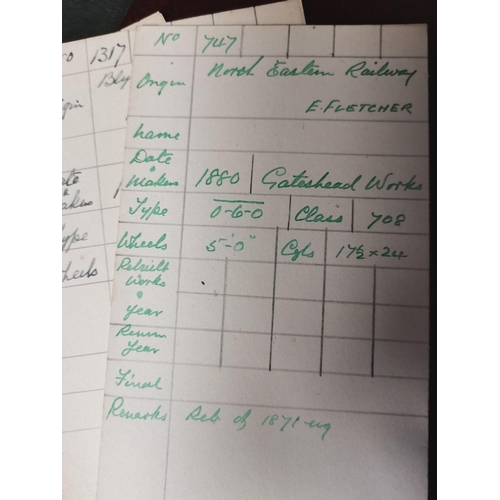 No 747
Origin North Eastern Railway
E. FLETCHER
name
Date & makers 1880 Gateshead Works
Type 0-6-0 Class 708
Wheels 5'-0" Cyls 17½ x 24
Rebuilt
Works
&
year
Renum
Year
Final
Remarks Reb of 1871
1317
Bly